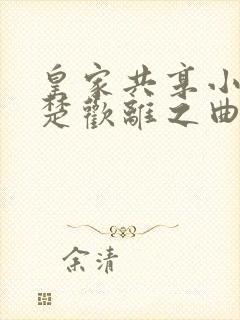 皇家共享小
楚歡離之曲
余清